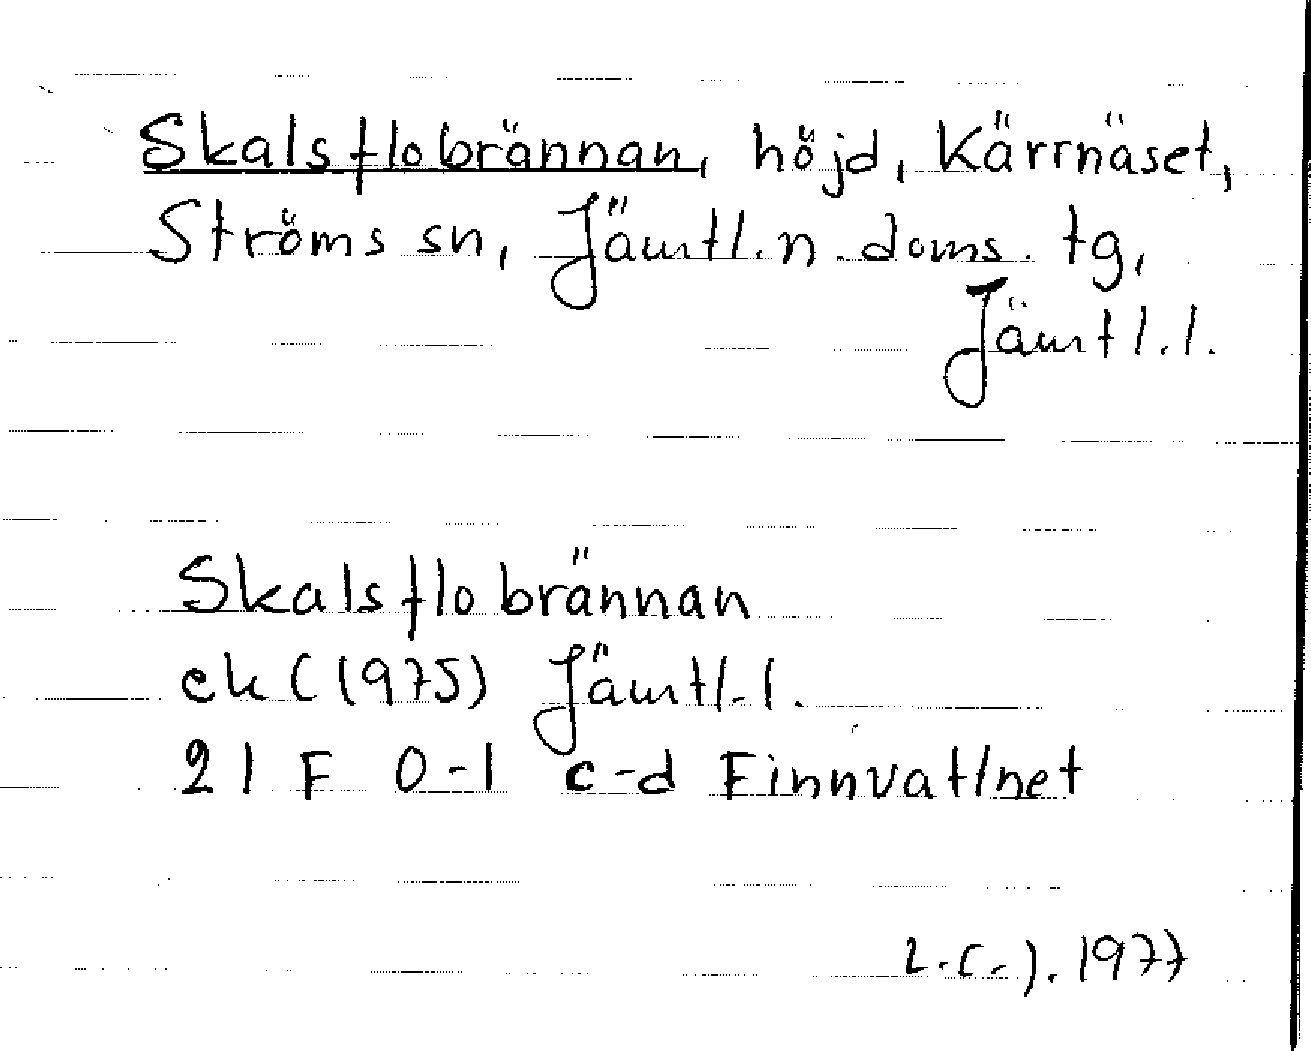 Skalsflobrännan, höjd, Kärrnäset,
Ströms sn, Jämtl. n. doms. tg,
Jämtl. l.
Skalsflobrännan
ek (1975) Jämtl. l.
21 F 0-1 c-d Finnvattnet
1977